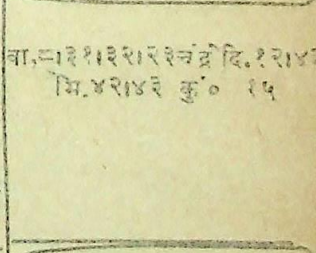 वा.८।३१।३२।२३चंद्रे दि.१२।४२
मि.४२।४३ कुं० १५